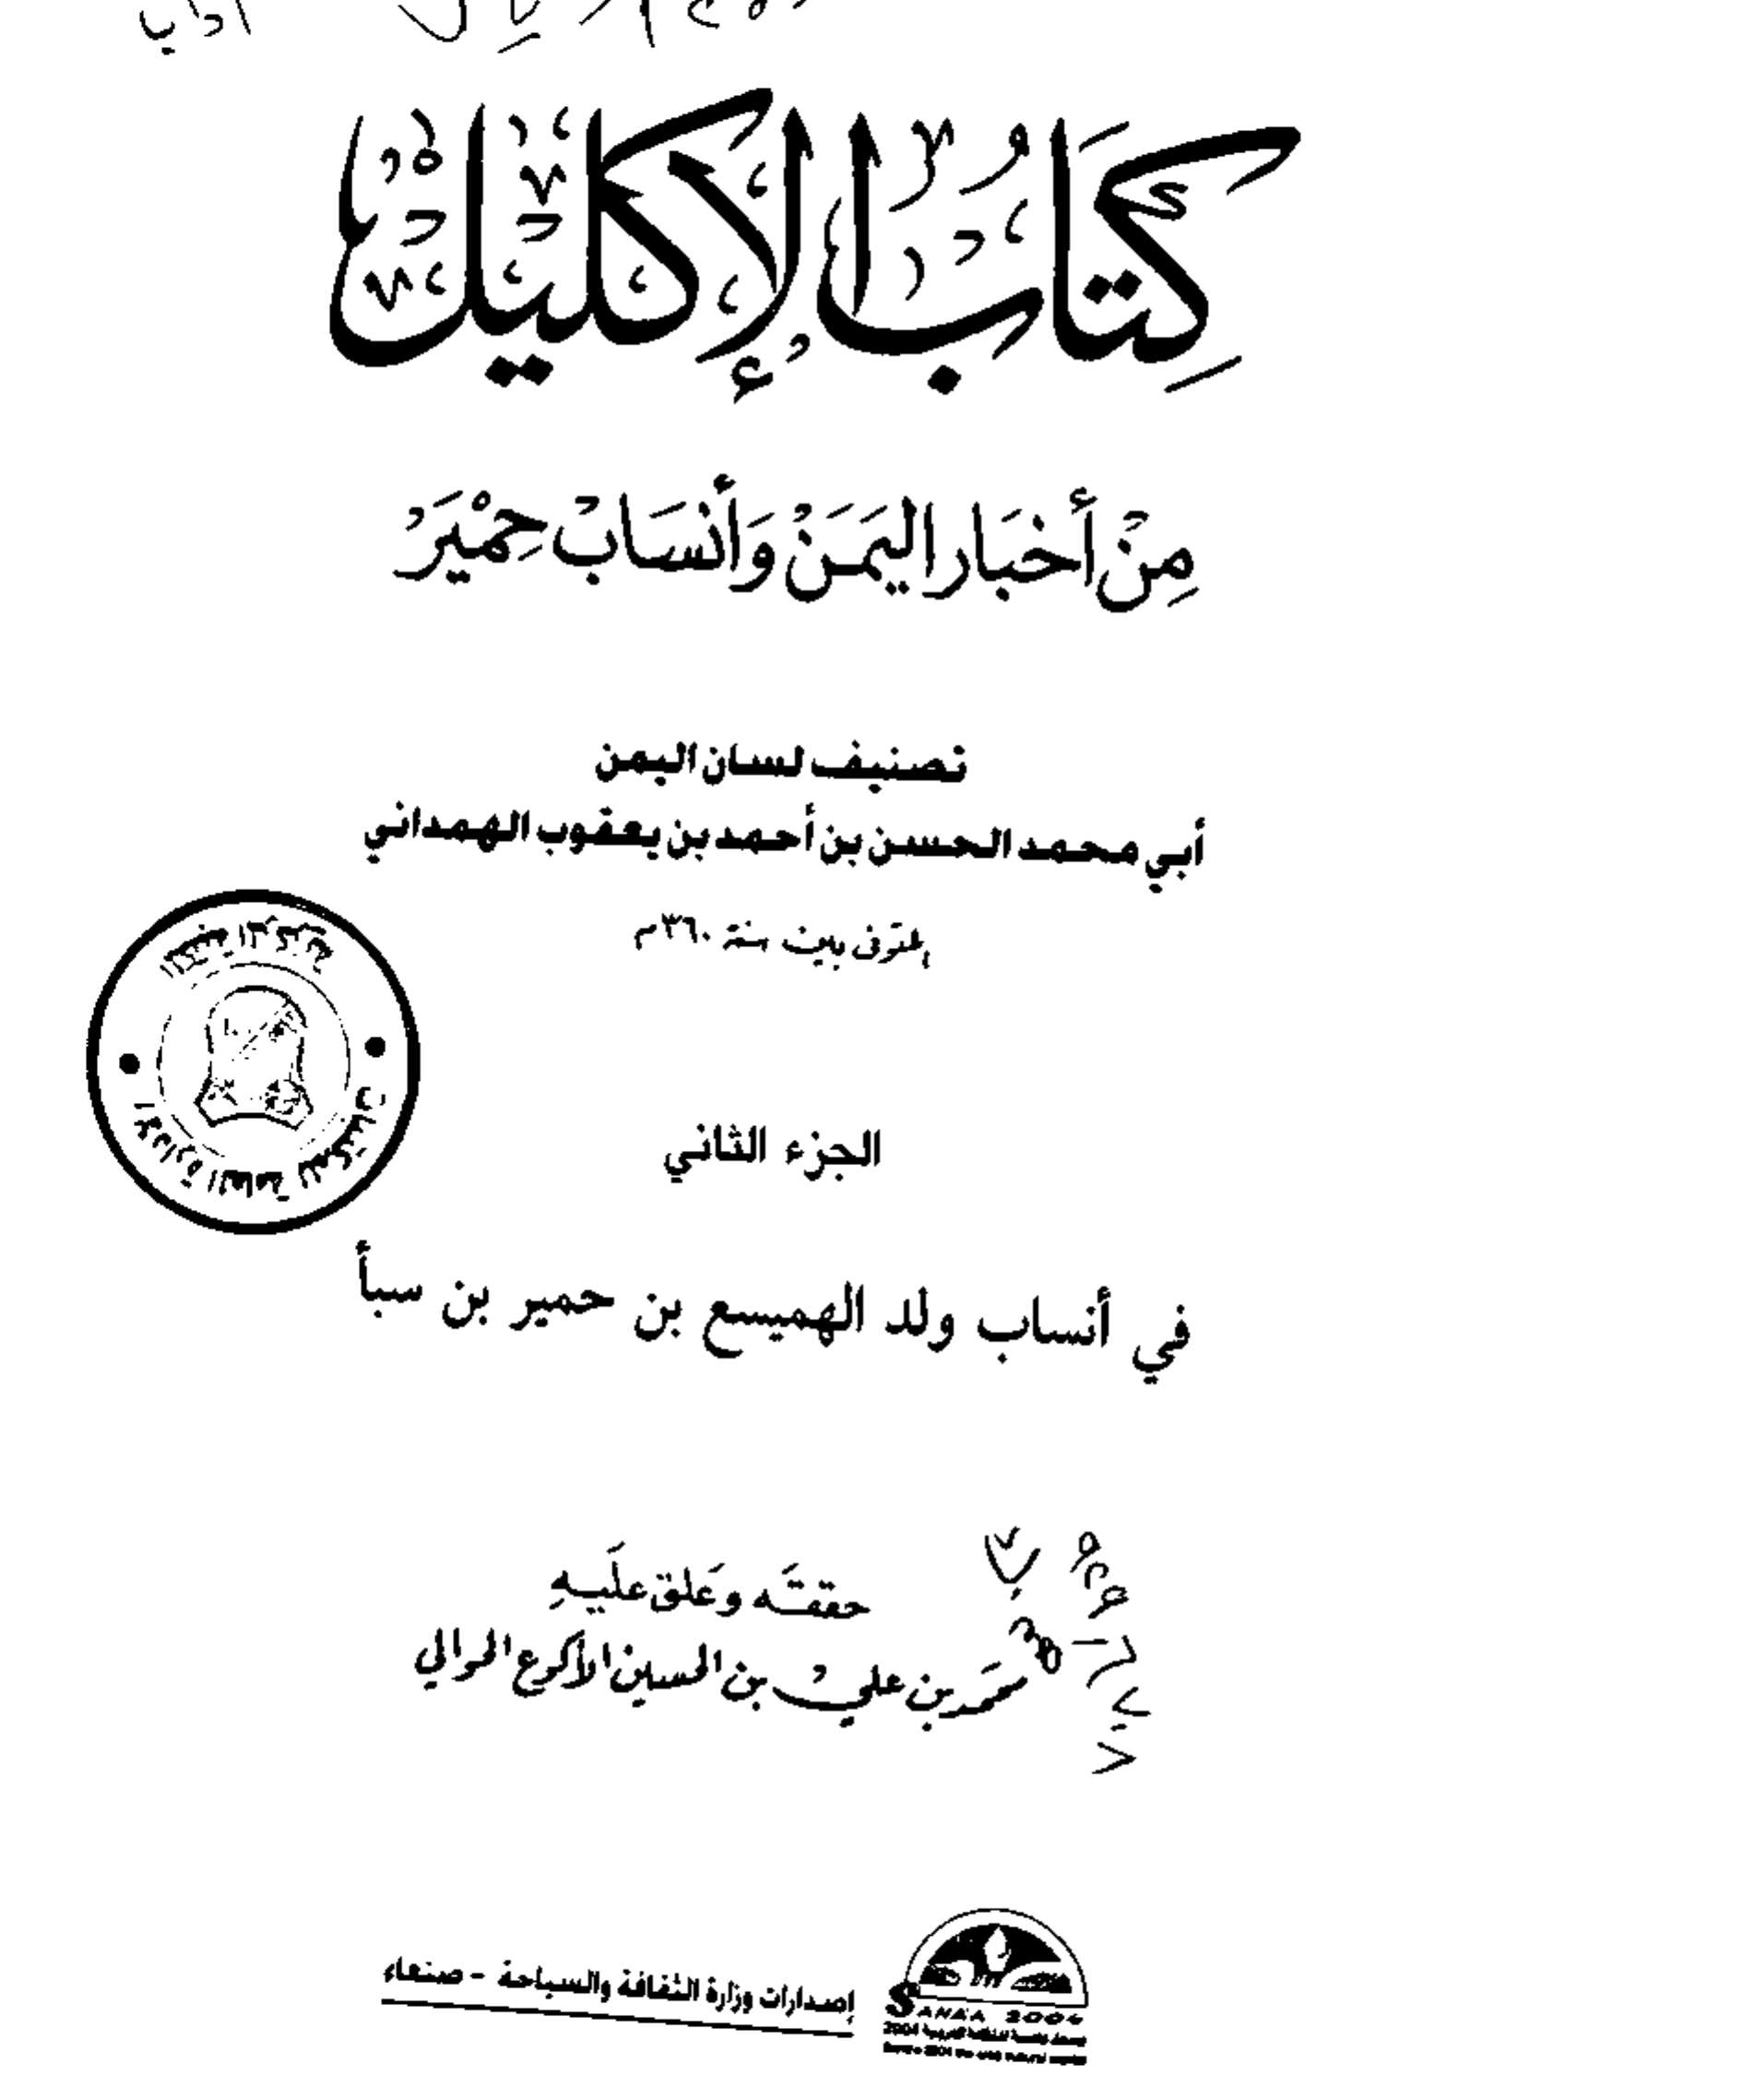 كِتَابُ الإِكْلِيل
مِنْ أَخْبَار اليَمَنْ وَأَنْسَابْ حِمْيَرْ
تصنيف لسان اليمن
أبي محمد الحسن بن أحمد بن يعقوب الهمداني
سنة ٣٦٠
الجزء الثاني
في أنساب ولد الهميسع بن حمير بن سبأ
حققَه وعَلق علَيهِ
محمَد بن علي بن الحسين الأكوع الحوالي
إصدارات وزارة الثقافة والسياحة - صنعاء
SANA'A 2004